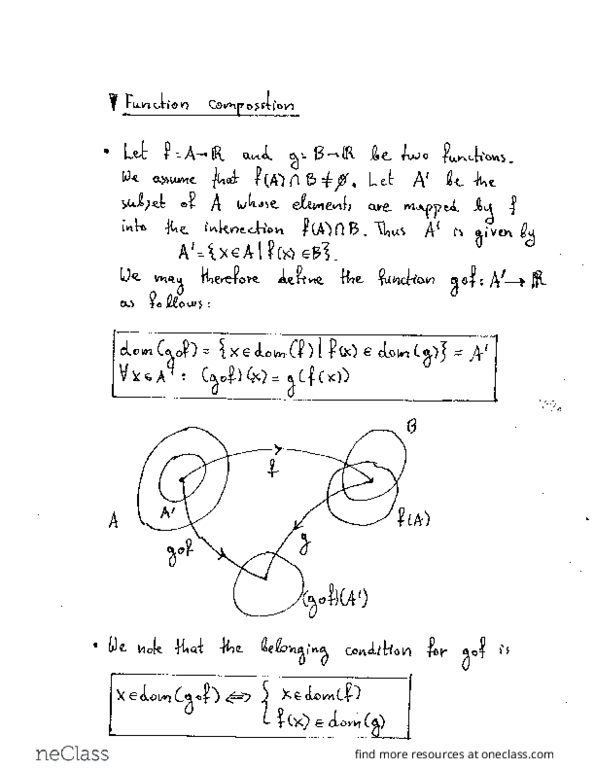 Function composition
• Let f: A→ℝ and g: B→ℝ be two functions.
We assume that f(A)∩B≠∅. Let A' be the
subset of A whose elements are mapped by f
into the intersection f(A)∩B. Thus A' is given by
A'={x∈A|f(x)∈B}.
We may therefore define the function gof: A'→ℝ
as follows:
dom(gof) = {x∈dom(f)|f(x)∈dom(g)} = A'
∀x∈A' : (gof)(x) = g(f(x))
B
f
A'
A
f(A)
gof
g
(gof)(A')
• We note that the belonging condition for gof is
x∈dom(gof) ⟺ { x∈dom(f)
f(x)∈dom(g)
neClass
find more resources at oneclass.com